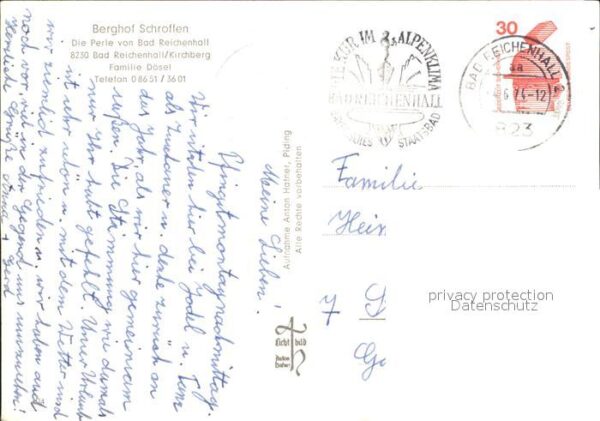 Berghof Schroffen
Die Perle von Bad Reichenhall
8230 Bad Reichenhall/Kirchberg
Familie Dösel
Telefon 08651/3601
30
DIE KUR IM ALPENKLIMA
BAD REICHENHALL
BAYERISCHES STAATSBAD
BAD REICHENHALL 2
aa
6.74-12
823
Meine Lieben!
Pfingstmontagnachmittag.
Wir sitzen hier bei Jodl u. Tanz
als Zuschauer u. denke zurück an
das Jahr, als wir hier gemeinsam
saßen. Die Stimmung wie damals
nur Ihr habt gefehlt. Unser Urlaub
ist sehr schön u. mit dem Wetter sind
wir ziemlich zufrieden u. wir haben auch
noch vor, wie in der Gegend uns umzusehn!
Herzliche Grüße Anna + Gerd
Aufnahme Anton Hafner, Piding
Alle Rechte vorbehalten
Licht bild
Anton Hafner
Familie
Hein
7 S
Ge
privacy protection
Datenschutz